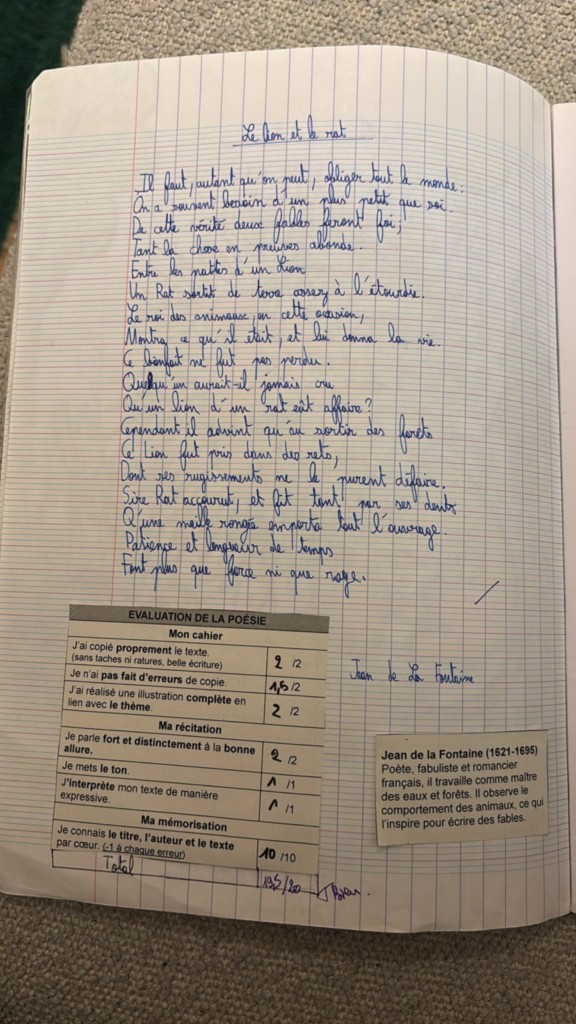 Le lion et le rat
Il faut, autant qu'on peut, obliger tout le monde.
On a souvent besoin d'un plus petit que soi.
De cette vérité deux fables feront foi,
Tant la chose en preuves abonde.
Entre les pattes d'un Lion
Un Rat sortit de terre assez à l'étourdie.
Le roi des animaux, en cette occasion,
Montra ce qu'il était, et lui donna la vie.
Ce bienfait ne fut pas perdu.
Quelqu'un aurait-il jamais cru
Qu'un lion d'un rat eût affaire?
Cependant il advint qu'au sortir des forêts
Ce Lion fut pris dans des rets,
Dont ses rugissements ne le purent défaire.
Sire Rat accourut, et fit tant par ses dents
Q'une maille rongée emporta tout l'ouvrage.
Patience et longueur de temps
Font plus que force ni que rage.
Jean de La Fontaine
EVALUATION DE LA POÉSIE
Mon cahier
J'ai copié proprement le texte.
(sans taches ni ratures, belle écriture)
2 /2
Je n'ai pas fait d'erreurs de copie.
1,5 /2
J'ai réalisé une illustration complète en
lien avec le thème.
2 /2
Ma récitation
Je parle fort et distinctement à la bonne
allure.
2 /2
Je mets le ton.
1 /1
J'interprète mon texte de manière
expressive.
1 /1
Ma mémorisation
Je connais le titre, l'auteur et le texte
par cœur. (-1 à chaque erreur)
10 /10
Total
19,5/20
Jean de la Fontaine (1621-1695)
Poète, fabuliste et romancier
français, il travaille comme maître
des eaux et forêts. Il observe le
comportement des animaux, ce qui
l'inspire pour écrire des fables.